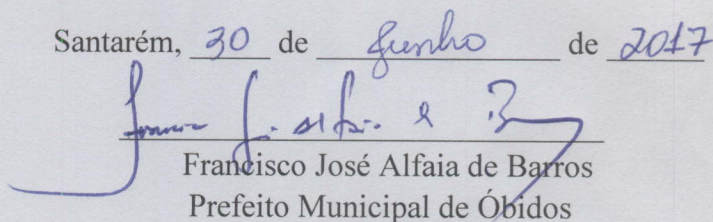 Santarém, 30 de Junho de 2017
Francisco José Alfaia de Barros
Prefeito Municipal de Óbidos